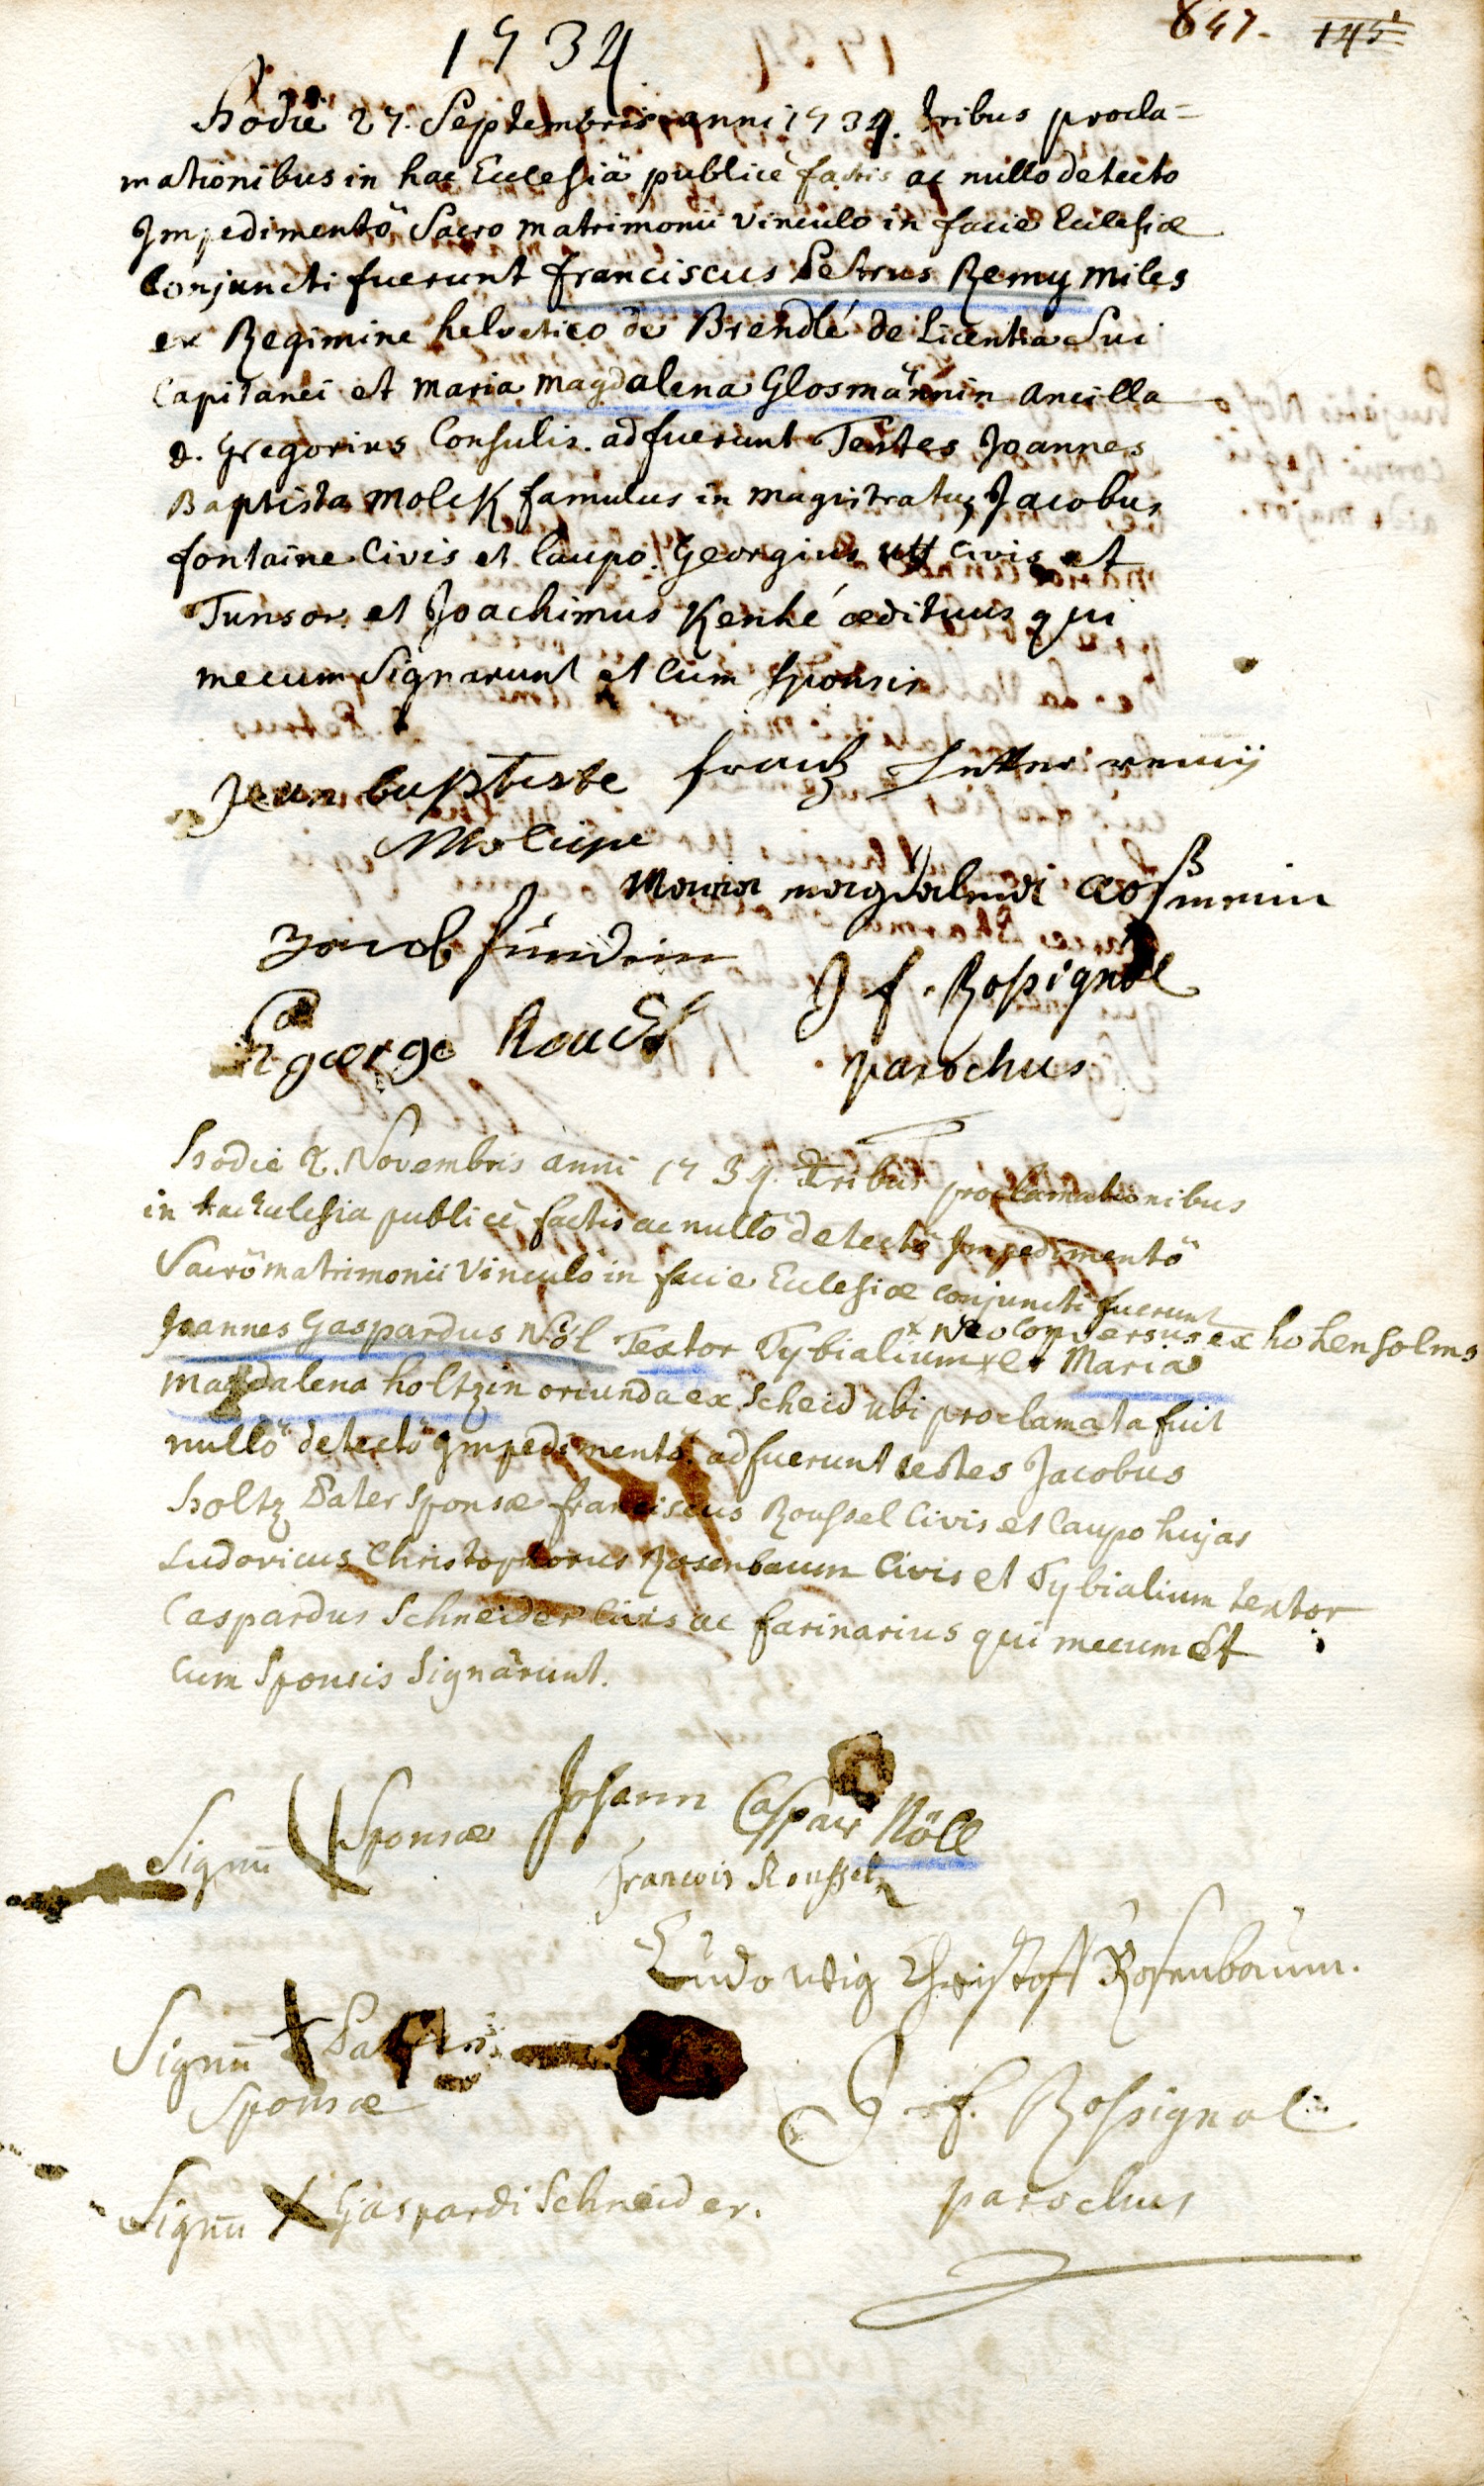 1734
847. 145
Hodie 27. Septembris anni 1734. tribus procla=
mationibus in hac Ecclesiâ publicè factis ac nullo detecto
Impedimentô Sacro matrimonii vinculo in facie Ecclesiæ
Conjuncti fuerunt franciscus Petrus Remy miles
ex Regimine helvetico de Brendlé de licentia Sui
Capitanei et maria magdalena Glosmännin ancilla
d. Gregorius Consulis. adfuerunt Testes Joannes
Baptista Molck famulus in magistratu, Jacobus
fontaine Civis et Caupo. Georgius civis et
Tunsor. et Joachimus Kenhé ædituus qui
mecum Signarunt et Cum Sponsis
Jean baptiste
frantz remij
Maria magdalena
Jacob
J f. Rossignol
george
parochus
Hodie 2. Novembris anni 1734. tribus proclamationibus
in hac Ecclesia publicè factis ac nullô detectô Impedimentô
Sacrô matrimonii Vinculô in facie Ecclesiæ conjuncti fuerunt
x Neo Conversus ex hohensolms
Joannes Gaspardus Nöl Textor Tybialium x et Maria
Magdalena holtzin oriunda ex Scheid ubi proclamata fuit
nullô detectô Impedimentô. adfuerunt testes Jacobus
Holtz Pater Sponsæ franciscus Roussel Civis et Caupo hujas
Ludovicus Christophorus Rosenbaum Civis et Tybialium textor
Caspardus Schneider Civis ac farinarius qui mecum et
Cum Sponsis Signârunt.
Signū Sponsæ
Johann Caspar Nöll
francois Roussel
Ludowig Christoff Rosenbaum.
Signū + Patris
Sponsæ
J. f. Rossignol
parochus
Signū + Gaspardi Schneider.